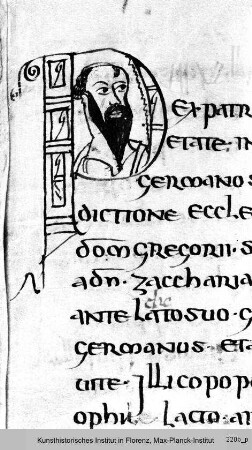 P
EX PATR
ETATE; IN
GERMANOS
DICTIONE ECCLE
DOM GREGORII · S
ADN · ZACCHARIA
ANTE LATOSUO · G
GERMANUS · ETA
POPO
LACTO · AN
Kunsthistorisches Institut in Florenz, Max-Planck-Institut 220b_p